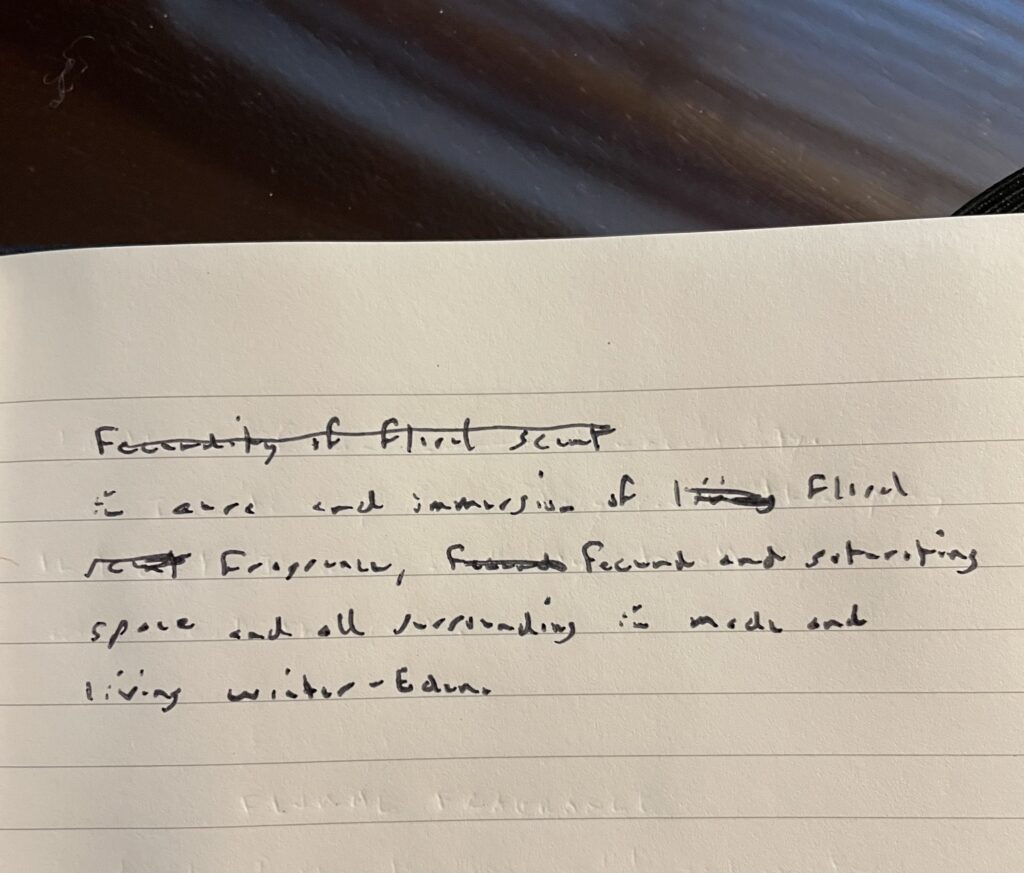 Fecundity of floral scent
in aura and immersion of living floral
scent fragrance, fecund fecund and saturating
space and all surrounding in made and
living winter-Eden.
FLORAL FRAGRANCE